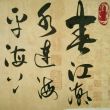 春江潮
水连海
平海上